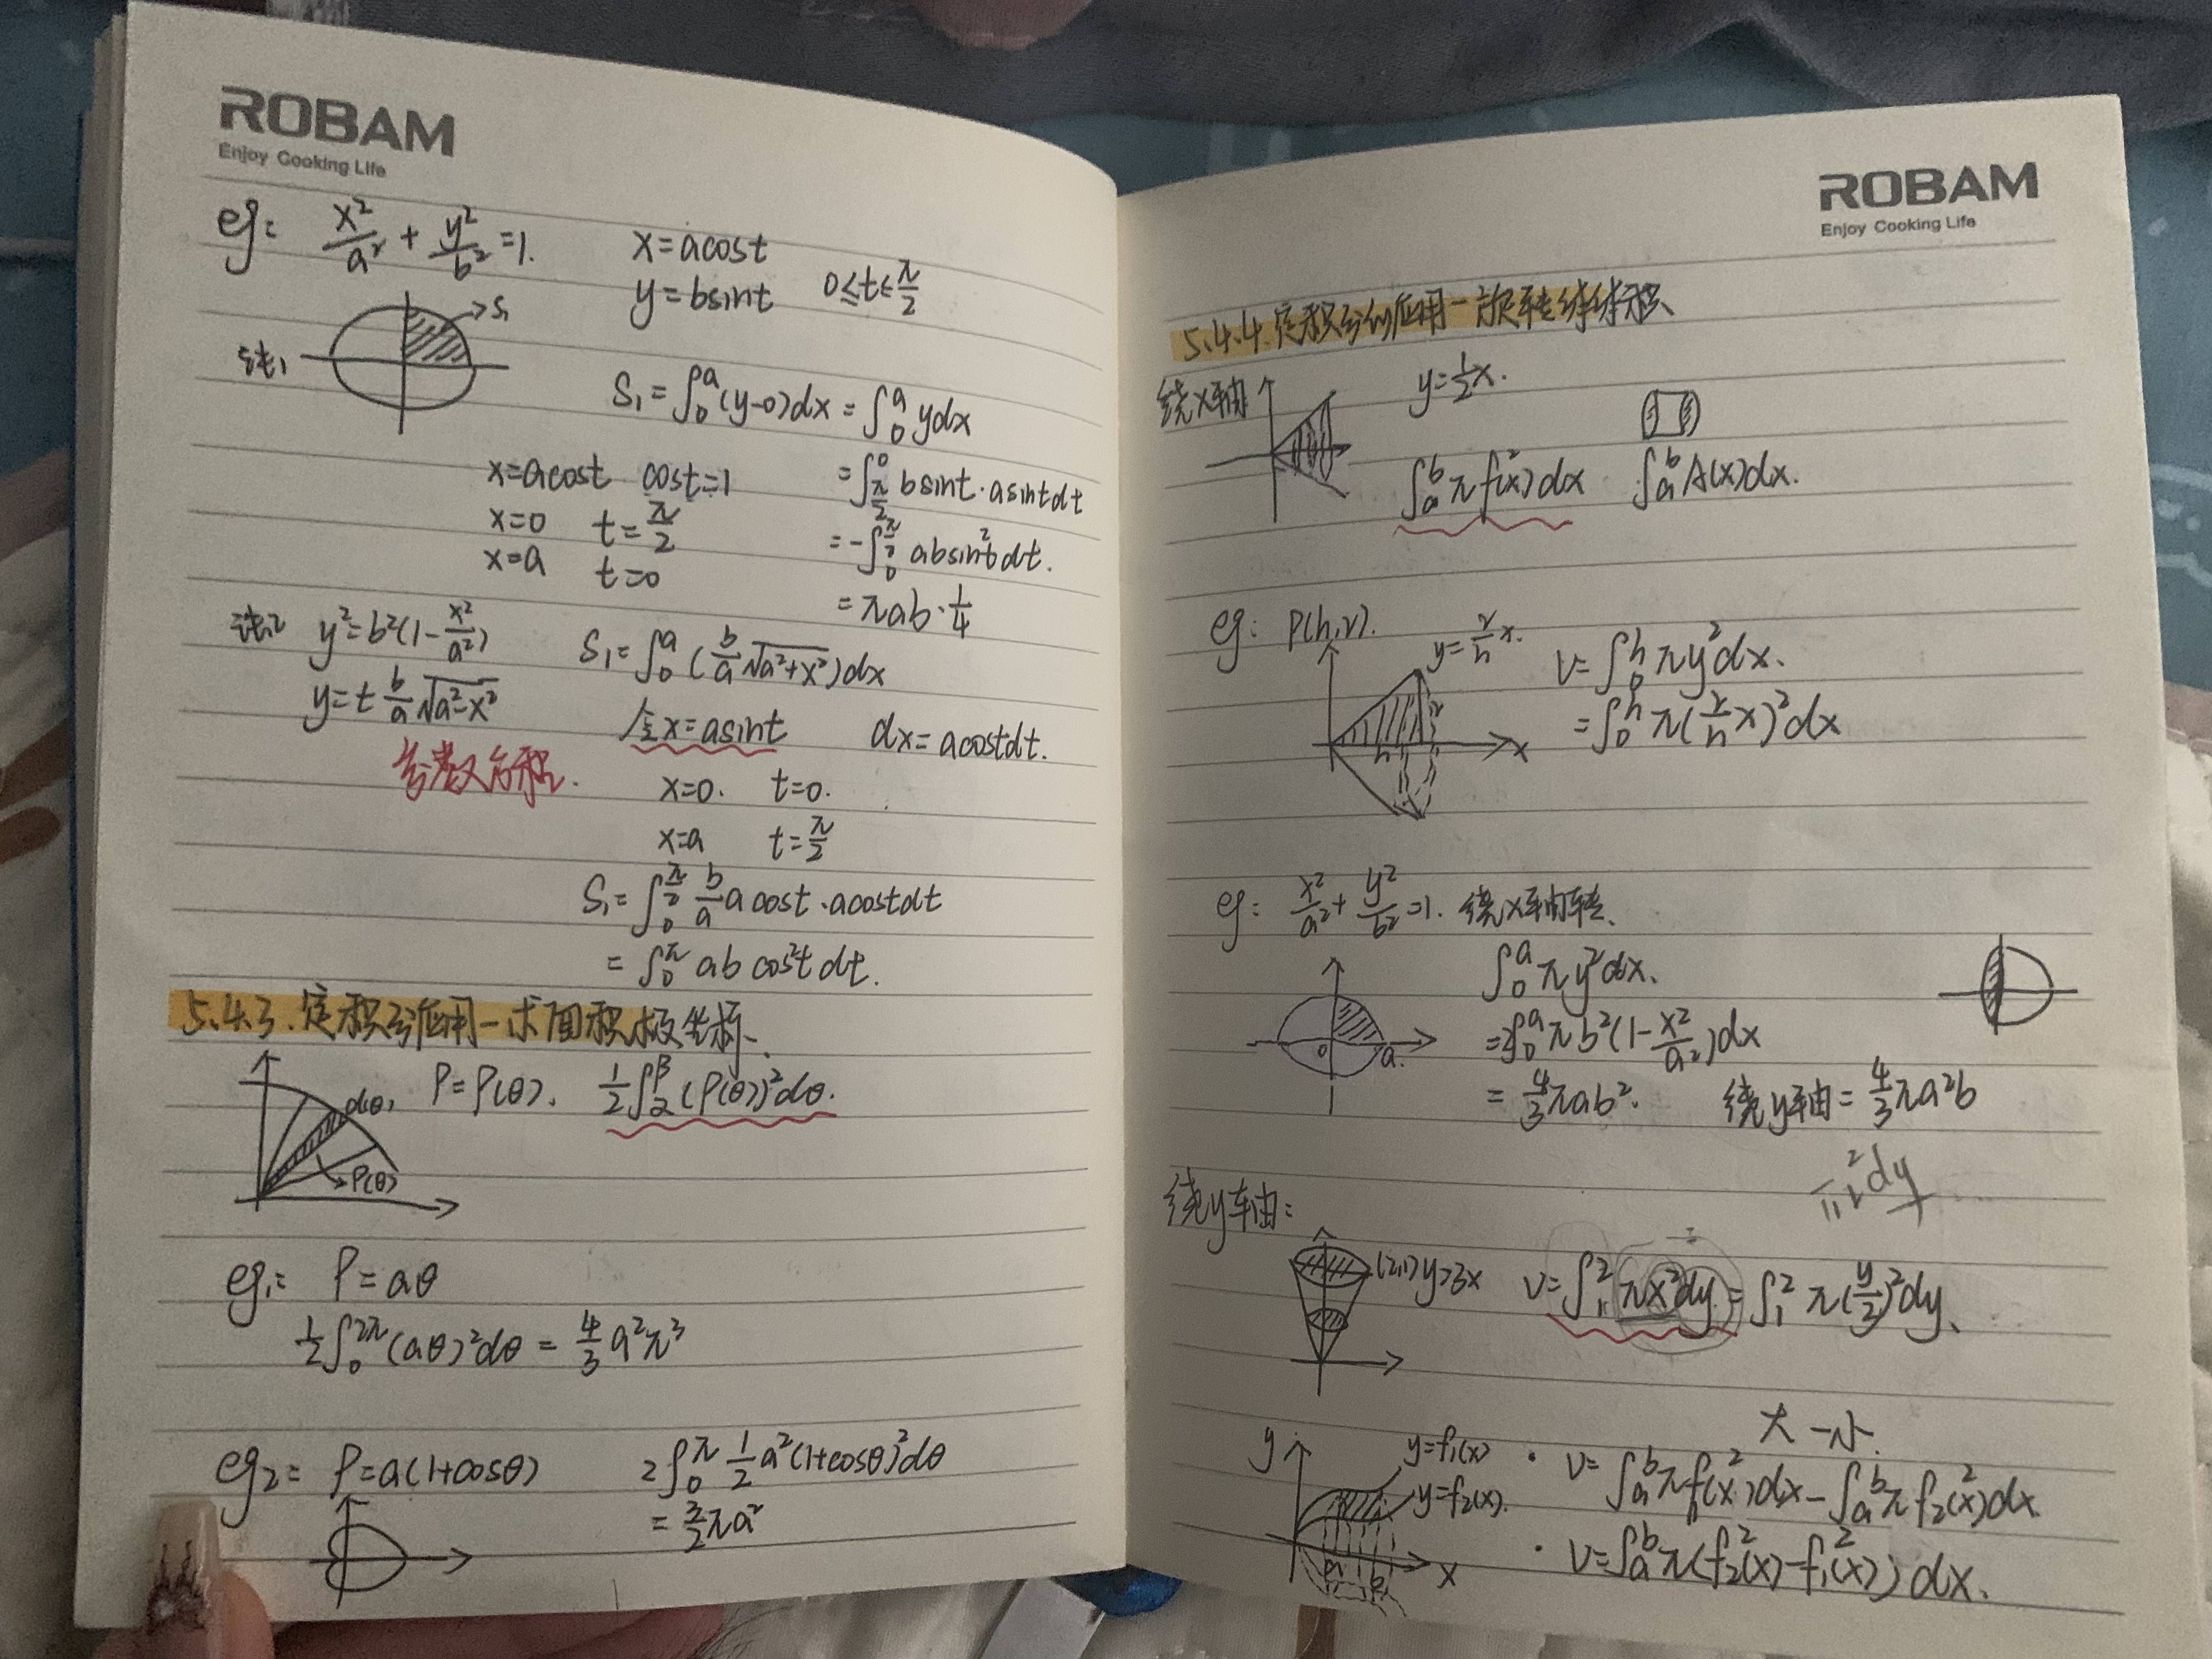 ROBAM
Enjoy Cooking Life
eg: x²/a² + y²/b² = 1. x=acost
y=bsint 0≤t≤π/2
→S₁
法1
S₁=∫₀ᵃ(y-0)dx=∫₀ᵃydx
x=acost cost=1 =∫_{π/2}^0 bsint·asintdt
x=0 t=π/2 =-∫_0^{π/2} absin²tdt.
x=a t=0
=πab·1/4
法2 y²=b²(1-x²/a²) S₁=∫₀ᵃ(b/a √(a²+x²))dx
y=± b/a √(a²-x²) 令x=asint dx=acostdt.
参数方程.
x=0. t=0.
x=a t=π/2
S₁=∫_0^{π/2} b/a acost·acostdt
=∫_0^π abcos²tdt.
5.4.3.定积分应用-求面积极坐标、
d(θ) ρ=ρ(θ). 1/2∫_α^β(ρ(θ))²dθ.
ρ(θ)
eg₁: ρ=aθ
1/2∫_0^{2π}(aθ)²dθ=4/3 a²π³
eg₂: ρ=a(1+cosθ) 2∫_0^π 1/2 a²(1+cosθ)²dθ
=3/2πa²
ROBAM
Enjoy Cooking Life
5.4.4.定积分的应用-旋转体体积
绕x轴 y=1/2x.
∫_a^b πf²(x)dx ∫_a^b A(x)dx.
eg: P(h,r). y=r/h x. V=∫_0^h πy²dx.
r h x =∫_0^h π(r/h x)²dx
eg: x²/a²+y²/b²=1. 绕x轴转、
∫_0^a πy²dx.
o a. =2∫_0^a πb²(1-x²/a²)dx
=4/3πab². 绕y轴=4/3πa²b
πr²dy
绕y轴:
(2,1) y=3x V=∫_1^2 πx²dy=∫_1^2 π(y/2)²dy、
大-小.
y y=f₁(x) · V=∫_a^b πf₁²(x)dx-∫_a^b πf₂²(x)dx
y=f₂(x).
a b x · V=∫_a^b π(f₂²(x)-f₁²(x))dx.